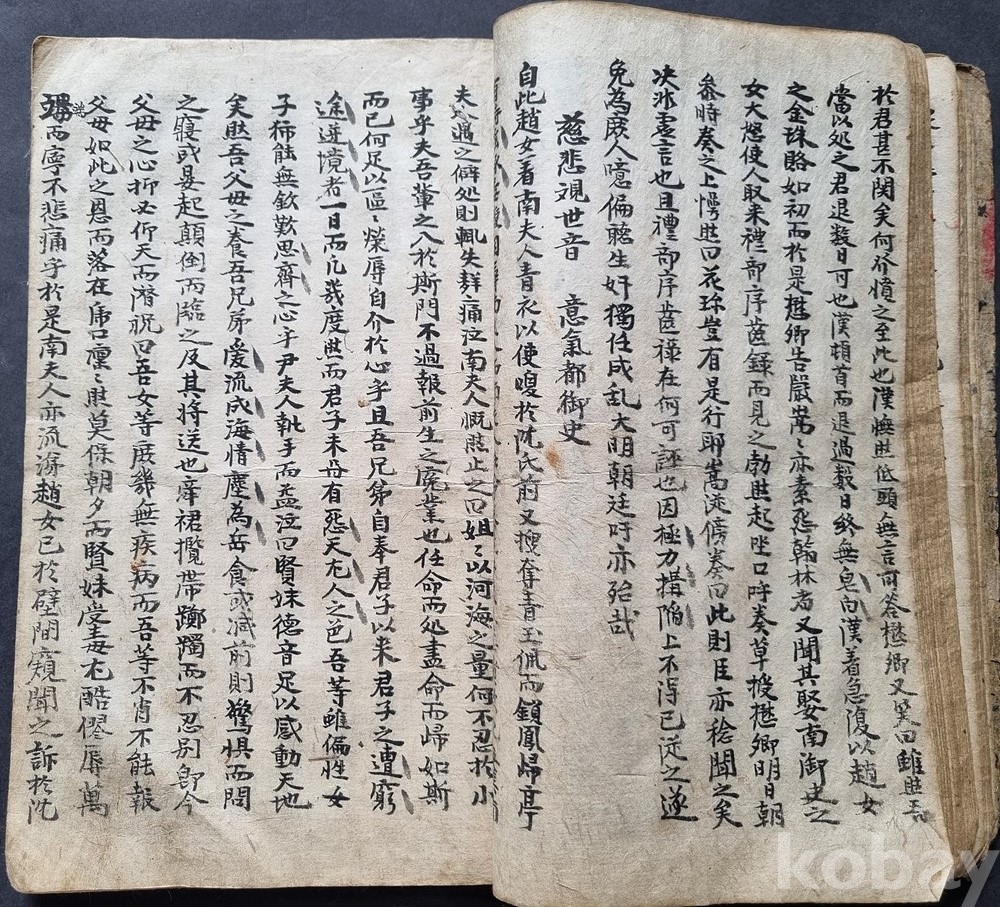 於君甚不関矣何介憤之至此也漢憮然低頭無言可答懋卿又笑曰雖然吾
當以処之君退数日可也漢頓首而退過数日終無皂白漢着急復以趙女
之金珠賂如初而於是懋卿告嚴嵩嵩亦素怨翰林者又聞其娶南御史之
女大怒使人取来禮部序齒錄而見之勃然起陞口呼奏草授懋卿明日朝
叅時奏之上愕然曰花珎豈有是行耶嵩從傍奏曰此則臣亦稔聞之矣
决非虛言也且禮部序齒祿在何可誣也因極力搆陷上不得已從之遂
免為庶人噫偏聽生奸獨任成乱大明朝廷吁亦殆哉
慈悲視世音 意氣都御史
自此趙女着南夫人青衣以使嗄於沈氏前又搜奪青玉佩而鎖鳳帰亭
夫遇之僻処則輒失聲痛泣南夫人慨然止之曰姐〻以河海之量何不忍於小
事乎夫吾輩之入於斯門不過報前生之寃業也任命而処盡命而帰如斯
而已何足以區〻榮辱自介於心乎且吾兄弟自奉君子以来君子之遭窮
途逆境者一日而凡幾度然而君子未甞有怨天尤人之色吾等雖偏性女
子柿能無欽歎思齊之心乎尹夫人執手而益泣曰賢妹德音足以感動天地
矣然吾父母之養吾兄弟爱流成海情塵為岳食或减前則驚惧而問
之寢或晏起顛倒而臨之及其将送也牽裙攬帶躑躅而不忍別卽今
父母之心抑必仰天而潛祝曰吾女等庶幾無疾病而吾等不肖不能報
父母如此之恩而落在虎口凛〻然莫保朝夕而賢妹受毒尤酷僇辱萬
端而寧不悲痛乎於是南夫人亦流涕趙女已於壁間窺聞之訴於沈
kobay